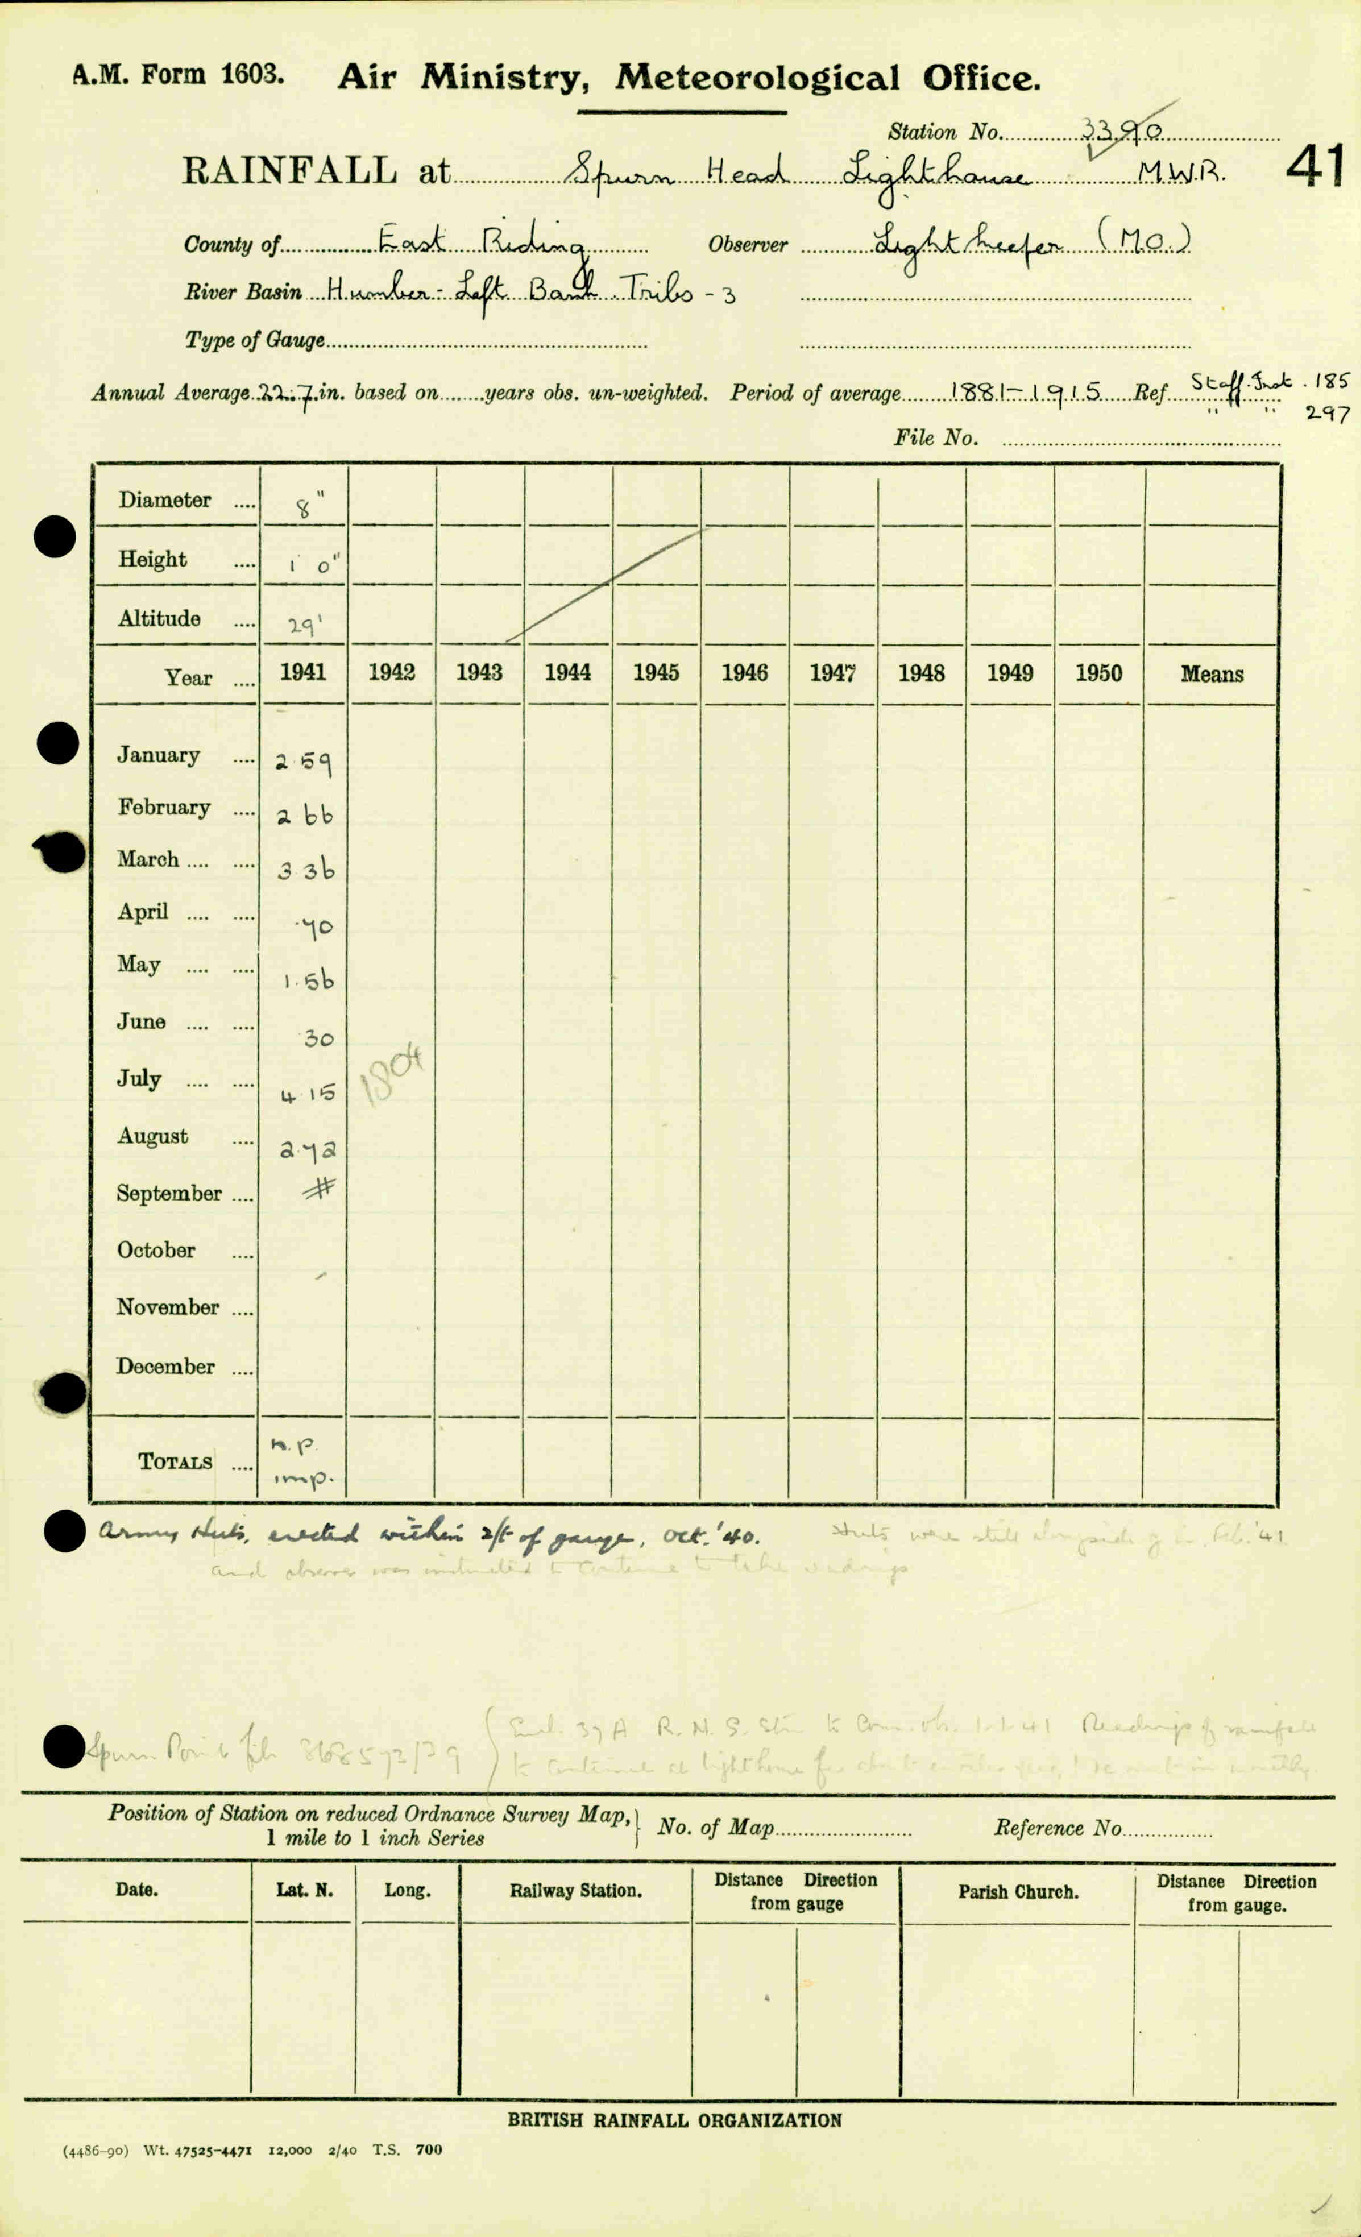 A.M. Form 1603. Air Ministry, Meteorological Office.
Station No. 3390
RAINFALL at Spurn Head Lighthouse M.W.R. 41
County of East Riding Observer Lightkeeper (M.O.)
River Basin Humber - Left Bank Tribs - 3
Type of Gauge
Annual Average 22.7 in. based on years obs. un-weighted. Period of average 1881-1915 Ref. Staff. Inst. 185
" " 297
File No.
Diameter .... 8"
Height .... 1 0"
Altitude .... 29'
Year .... 1941 1942 1943 1944 1945 1946 1947 1948 1949 1950 Means
January .... 2.59
February .... 2 66
March .... .... 3 36
April .... .... .70
May .... .... 1.56
June .... .... 30
July .... .... 4 15 1804
August .... 2.72
September .... #
October ....
November ....
December ....
TOTALS .... n.p.
imp.
Army Huts, erected within 2ft of gauge, Oct. '40. Huts were still alongside Feb. '41
and observer was instructed to continue to take readings
Spurn Point file { Encl. 37A R.N.S. 1.1.41 Readings of rainfall
to continue at lighthouse monthly.
Position of Station on reduced Ordnance Survey Map, } No. of Map Reference No.
1 mile to 1 inch Series
Date. Lat. N. Long. Railway Station. Distance Direction from gauge Parish Church. Distance Direction from gauge.
BRITISH RAINFALL ORGANIZATION
(4486-90) Wt. 47525-4471 12,000 2/40 T.S. 700